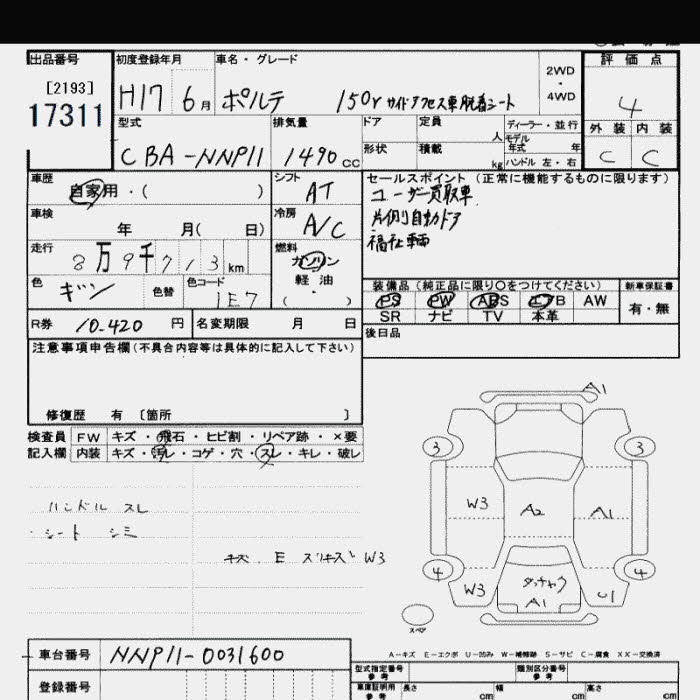 出品番号
[2193]
17311
初度登録年月
H17 6月
車名・グレード
ポルテ 150r サイドアクセス車 脱着シート
2WD
・
4WD
評価点
4
外装 内装
C C
型式
CBA-NNP11
排気量
1490 cc
ドア
定員
人
形状
積載
kg
ディーラー・並行
モデル
年式 年
ハンドル 左・右
車歴
自家用・( )
シフト
AT
車検
年 月( 日)
冷房
A/C
走行
8万9千713km
燃料
ガソリン
軽油
( ・ )
色
ギン
色替
色コード
1E7
セールスポイント(正常に機能するものに限ります)
ユーザー買取車
片側自動ドア
福祉車輌
装備品(純正品に限り○をつけてください)
PS PW ABS エアB AW
SR ナビ TV 本革
新車保証書
有・無
R券 10-420 円
名変期限 月 日
後日品
注意事項申告欄(不具合内容等は具体的に記入して下さい)
修復歴 有 〔箇所 〕
検査員
記入欄
FW キズ・飛石・ヒビ割・リペア跡・×要
内装 キズ・汚レ・コゲ・穴・スレ・キレ・破レ
ハンドル スレ
シート シミ
キズ、E スリキズ W3
A1
3 3
W3 A2 A1
4 4
W3 A1 U1
スペア
A-キズ E-エクボ U-凹み W-補修跡 S-サビ C-腐食 XX-交換済
車台番号
NNP11-0031600
登録番号
型式指定番号
参考
類別区分番号
参考
車庫証明用
参考
長さ cm
幅 cm
高さ cm